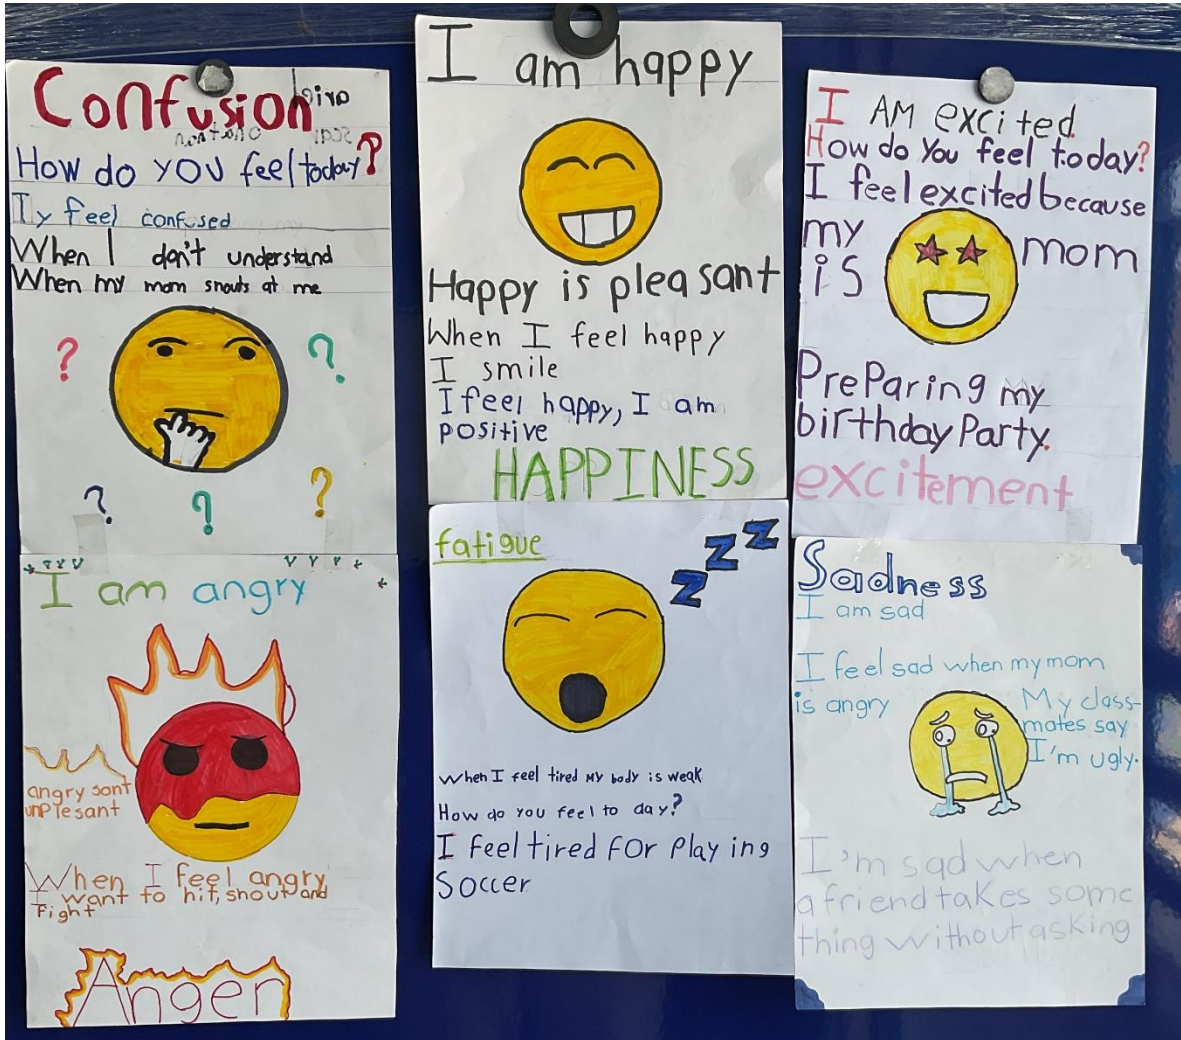 Confusion
How do you feel today?
Iy feel confused
When I don't understand
When my mom snouts at me
? ?
? ? ?
I am angry
angry sont
unplesant
When I feel angry
I want to hit, shout and
Fight
Anger
I am happy
Happy is pleasant
When I feel happy
I smile
I feel happy, I am
positive
HAPPINESS
fatigue
z z z
When I feel tired my body is weak
How do you feel to day?
I feel tired for playing
Soccer
I AM excited.
How do You feel today?
I feel excited because
my mom
is
Preparing my
birthday Party.
excitement
Sadness
I am sad
I feel sad when my mom
is angry
My class-
mates say
I'm ugly.
I'm sad when
a friend takes some
thing without asking